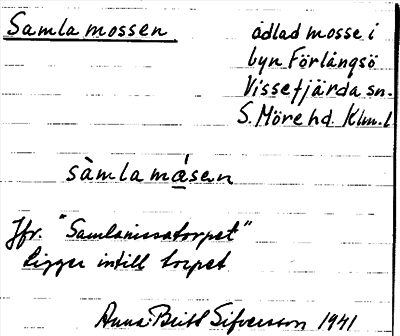 Samla mossen
odlad mosse i
byn Förlångsö
Vissefjärda sn.
S. Möre hd. Klm. l.
sàmlamǻsen
Jfr. "Samlanissatorpet"
Ligger intill torpet
Anna-Britt Sifversson 1941